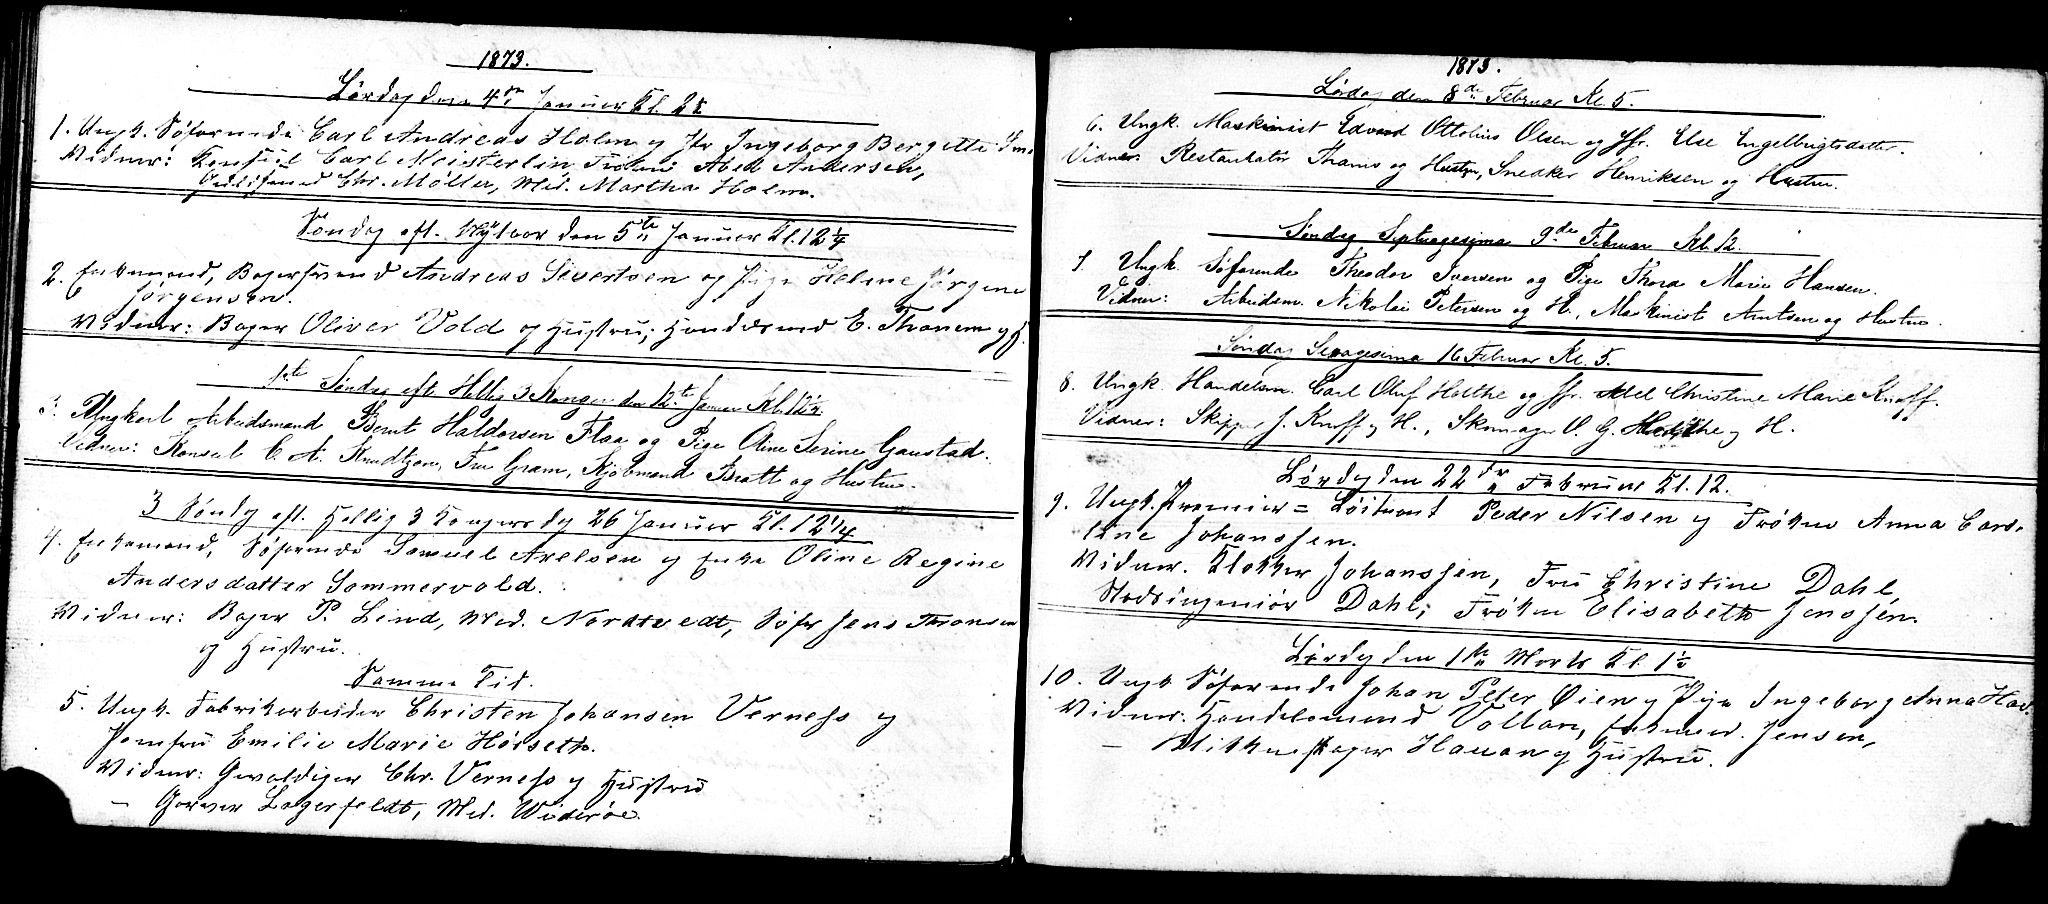 1873.
Lørdag den 4de Januar Kl. 2
1. Ungk. Søfarende Carl Andreas Holm og Jfr Ingeborg Bergitte
Vidner: Konsul Carl Meisterlin, Frøken Abel Andersen,
Chr. Møller, Mad. Martha Holm.
Søndag eft. Nytaar den 5te Januar Kl. 12 1/4
2. Enkemand, Bagersvend Andreas Sivertsen og Pige Heline Jørgine
Jørgensen.
Vidner: Bager Oliver Vold og Hustru; Handelsmd E. Thanem og H.
1ste Søndag eft. Hellig 3 Konger den 12te Januar Kl. 12 1/4
3. Ungkarl Arbeidsmand Bernt Haldorsen Flaa og Pige Oline Serine Gaustad.
Vidner: Konsul C. A. Knudtzon, Fru Gram, Kjøbmand Bratt og Hustru.
3 Søndag eft. Hellig 3 Kongersdag 26 Januar Kl. 12 1/4
4. Enkemand, Søfarende Samuel Axelsen og Enke Oline Regine
Andersdatter Sommervold.
Vidner: Bager P. Lind, Mad. Nordtvedt, Søfar Jens Thonsen
og Hustru.
Samme Tid.
5. Ungk. Fabrikarbeider Christen Johansen Verness og
Jomfru Emilie Marie Hørseth.
Vidner: Gevaldiger Chr. Verness og Hustru
— Garver Lagerfeldt, Mad. Widerøe.
1873.
Lørdag den 8de Februar Kl. 5.
6. Ungk. Maskinist Edvard Ottolius Olsen og Jfr. Else Engelbrigtsdatter.
Vidner: Restauratør Thams og Hustru, Snedker Henriksen og Hustru.
Søndag Septuagesima 9de Februar Kl. 12.
7. Ungk. Søfarende Theodor Iversen og Pige Thora Marie Hansen.
Vidner: Arbeidsm. Nikolai Petersen og H., Maskinist Arntsen og Hustru.
Søndag Sexagesima 16 Februar Kl. 5.
8. Ungk. Handelsm. Carl Oluf Holthe og Jfr. Christine Marie Knoff.
Vidner: Skipper J. Knoff og H., Skomager O. G. Holthe og H.
Lørdag den 22de Februar Kl. 12.
9. Ungk. Premier= Løitnant Peder Nilsen og Frøken Anna Caro-
line Johanssen.
Vidner. Klokker Johanssen, Fru Christine Dahl,
Stadsingeniør Dahl, Frøken Elisabeth Jenssen.
Lørdag den 1ste Marts Kl. 1 1/2
10. Ungk. Søfarende Johan Peter Øien og Pige Ingeborg Anna
Vidner. Handelsmand Vollan, Enkemad. Jensen,
— Hauan og Hustru.